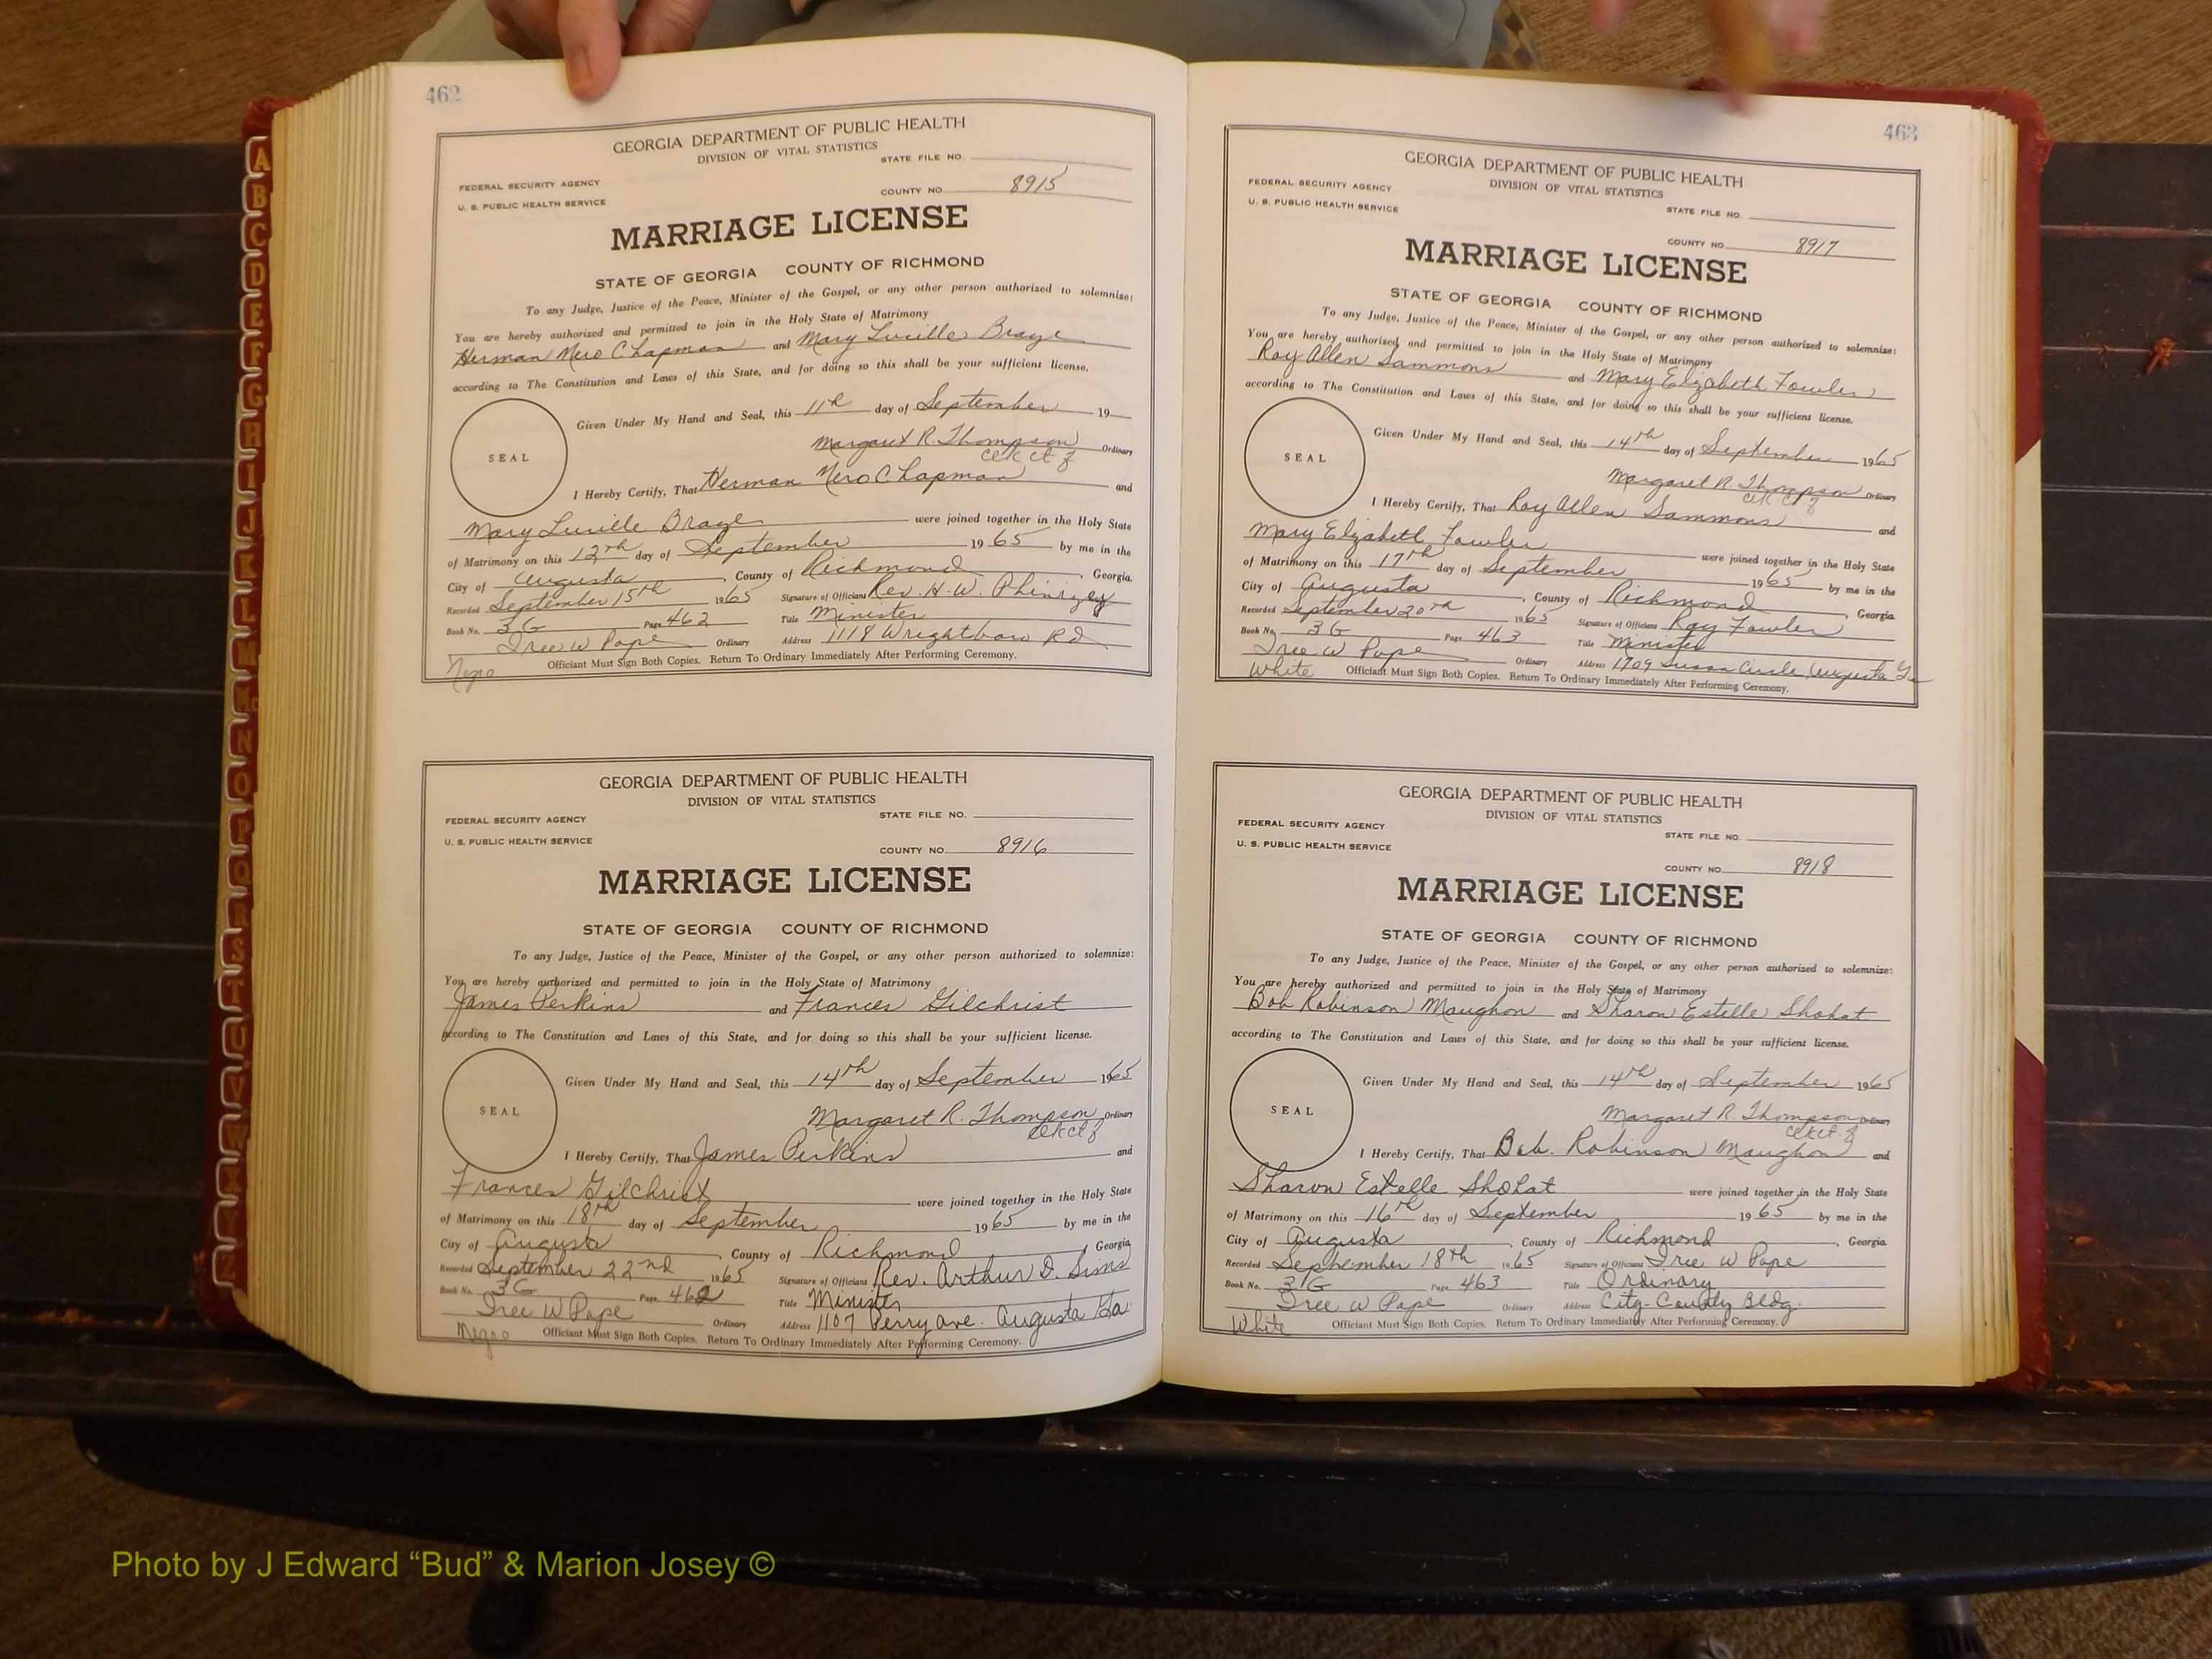 462
GEORGIA DEPARTMENT OF PUBLIC HEALTH
DIVISION OF VITAL STATISTICS
STATE FILE NO.
FEDERAL SECURITY AGENCY
COUNTY NO 8915
U. S. PUBLIC HEALTH SERVICE
MARRIAGE LICENSE
STATE OF GEORGIA COUNTY OF RICHMOND
To any Judge, Justice of the Peace, Minister of the Gospel, or any other person authorized to solemnize:
You are hereby authorized and permitted to join in the Holy State of Matrimony
Herman Nero Chapman and Mary Lucille Braye
according to The Constitution and Laws of this State, and for doing so this shall be your sufficient license.
Given Under My Hand and Seal, this 11th day of September 19
SEAL
Margaret R. Thompson Ordinary
I Hereby Certify, That Herman Nero Chapman and
Mary Lucille Braye were joined together in the Holy State
of Matrimony on this 12th day of September 1965 by me in the
City of Augusta, County of Richmond, Georgia.
Recorded September 15th 1965 Signature of Officiant Rev. H. W. Phinizey
Book No. 3G Page 462 Title Minister
Iree W Pope Ordinary Address 1118 Wrightboro Rd
Negro Officiant Must Sign Both Copies. Return To Ordinary Immediately After Performing Ceremony.
GEORGIA DEPARTMENT OF PUBLIC HEALTH
DIVISION OF VITAL STATISTICS
STATE FILE NO.
FEDERAL SECURITY AGENCY
U. S. PUBLIC HEALTH SERVICE
COUNTY NO. 8916
MARRIAGE LICENSE
STATE OF GEORGIA COUNTY OF RICHMOND
To any Judge, Justice of the Peace, Minister of the Gospel, or any other person authorized to solemnize:
You are hereby authorized and permitted to join in the Holy State of Matrimony
James Perkins and Frances Gilchrist
according to The Constitution and Laws of this State, and for doing so this shall be your sufficient license.
Given Under My Hand and Seal, this 14th day of September 1965
SEAL
Margaret R. Thompson Ordinary
I Hereby Certify, That James Perkins and
Frances Gilchrist were joined together in the Holy State
of Matrimony on this 18th day of September 1965 by me in the
City of Augusta, County of Richmond, Georgia
Recorded September 22nd 1965 Signature of Officiant Rev. Arthur D. Sims
Book No. 3G Page 462 Title Minister
Iree W Pope Ordinary Address 1107 Perry ave. Augusta Ga.
Negro Officiant Must Sign Both Copies. Return To Ordinary Immediately After Performing Ceremony.
463
GEORGIA DEPARTMENT OF PUBLIC HEALTH
DIVISION OF VITAL STATISTICS
FEDERAL SECURITY AGENCY
U. S. PUBLIC HEALTH SERVICE
STATE FILE NO.
COUNTY NO. 8917
MARRIAGE LICENSE
STATE OF GEORGIA COUNTY OF RICHMOND
To any Judge, Justice of the Peace, Minister of the Gospel, or any other person authorized to solemnize:
You are hereby authorized and permitted to join in the Holy State of Matrimony
Roy Allen Sammons and Mary Elizabeth Fowler
according to The Constitution and Laws of this State, and for doing so this shall be your sufficient license.
Given Under My Hand and Seal, this 14th day of September 1965
SEAL
Margaret R Thompson Ordinary
I Hereby Certify, That Roy Allen Sammons and
Mary Elizabeth Fowler were joined together in the Holy State
of Matrimony on this 17th day of September 1965 by me in the
City of Augusta, County of Richmond, Georgia
Recorded September 20th 1965 Signature of Officiant Ray Fowler
Book No. 3G Page 463 Title Minister
Iree W Pope Ordinary Address 1709 Circle Augusta Ga
White Officiant Must Sign Both Copies. Return To Ordinary Immediately After Performing Ceremony.
GEORGIA DEPARTMENT OF PUBLIC HEALTH
DIVISION OF VITAL STATISTICS
FEDERAL SECURITY AGENCY
STATE FILE NO.
U. S. PUBLIC HEALTH SERVICE
COUNTY NO. 8918
MARRIAGE LICENSE
STATE OF GEORGIA COUNTY OF RICHMOND
To any Judge, Justice of the Peace, Minister of the Gospel, or any other person authorized to solemnize:
You are hereby authorized and permitted to join in the Holy State of Matrimony
Bob Robinson Maughon and Sharon Estelle Shohat
according to The Constitution and Laws of this State, and for doing so this shall be your sufficient license.
Given Under My Hand and Seal, this 14th day of September 1965
SEAL
Margaret R. Thompson Ordinary
I Hereby Certify, That Bob. Robinson Maughon and
Sharon Estelle Shohat were joined together in the Holy State
of Matrimony on this 16th day of September 1965 by me in the
City of Augusta, County of Richmond, Georgia
Recorded September 18th 1965 Signature of Officiant Iree W Pope
Book No. 3G Page 463 Title Ordinary
Iree W Pope Ordinary Address City-County Bldg.
White Officiant Must Sign Both Copies. Return To Ordinary Immediately After Performing Ceremony.
A
B
C
D
E
F
G
H
I
J
K
L
M
Mc
N
O
P
Q
R
S
T
U
V
W
Photo by J Edward “Bud” & Marion Josey ©